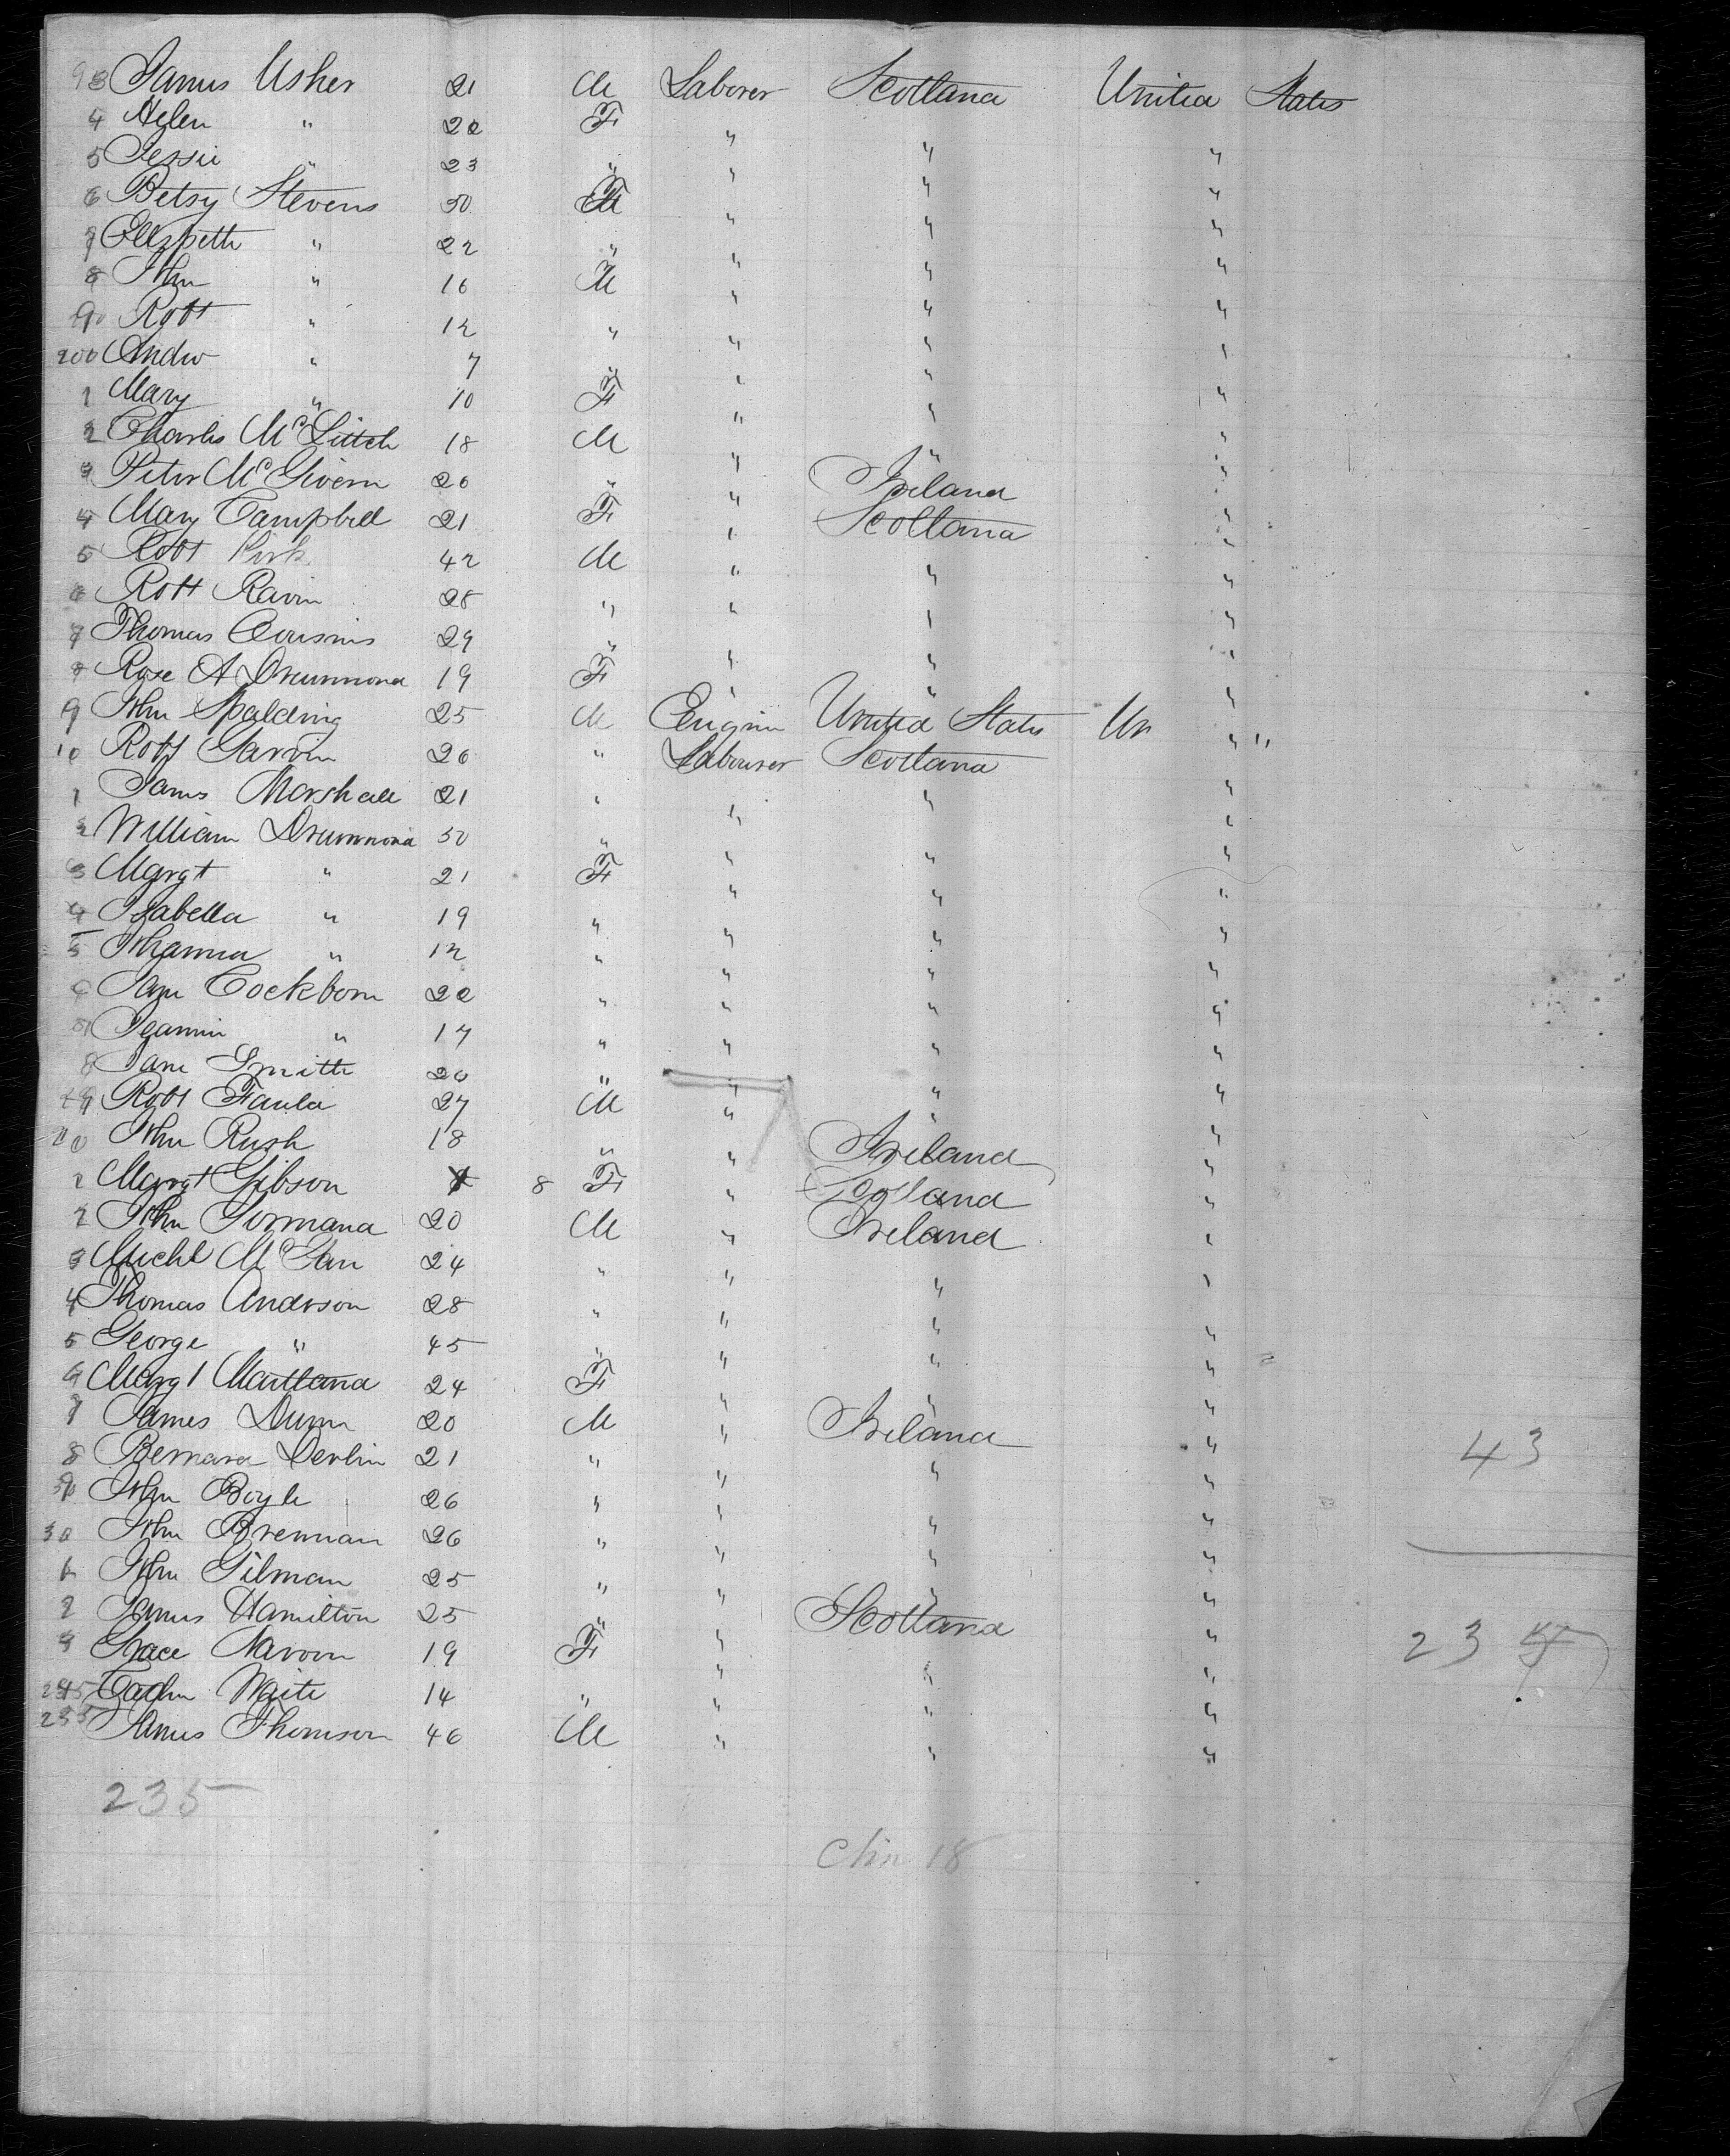 93 James Usher 21 M Laborer Scotland United States
4 Helen " 22 F " " "
5 Jessie " 23 " " " "
6 Betsy Stevens 50 F " " "
7 Elizpeth " 22 " " " "
8 John " 16 M " " "
9 Robt " 12 " " " "
200 Andw " 7 " " " "
1 Mary " 10 F " " "
2 Charles McLitch 18 M " " "
3 Peter McGivern 20 " " Ireland "
4 Mary Campbell 21 F " Scotland "
5 Robt Kirk 42 M " " "
6 Robt 28 " " " "
7 Thomas Cousins 29 " " " "
8 Rose A Drummond 19 F " " "
9 John Spalding 25 M Engin United States Un "
10 Robt Garvin 26 " Labourer Scotland "
1 James Marshall 21 " " " "
2 William Drummond 50 " " " "
3 Margt " 21 F " " "
4 Isabella " 19 " " " "
5 Johanna " 12 " " " "
6 Jane Cockborn 22 " " " "
7 Jeamin " 17 " " " "
8 Jane Smith 20 " " " "
19 Robt 27 M " " "
20 John Rush 18 " " Ireland "
1 Margt Gibson 8 F " Scotland "
2 John Gormand 20 M " Ireland "
3 Michl Mc 24 " " " "
4 Thomas Anderson 28 " " " "
5 George " 45 " " " "
6 Margt Maitland 24 F " " "
7 James Dunn 20 M " Ireland "
8 Bernard Devlin 21 " " " " 43
9 John Boyle 26 " " " "
30 John Brennan 26 " " " "
1 John Gilman 25 " " " "
2 James Hamilton 25 " " Scotland "
3 Grace 19 F " " " 23
Waite 14 " " " "
235 James Thomson 46 M " " "
235
18